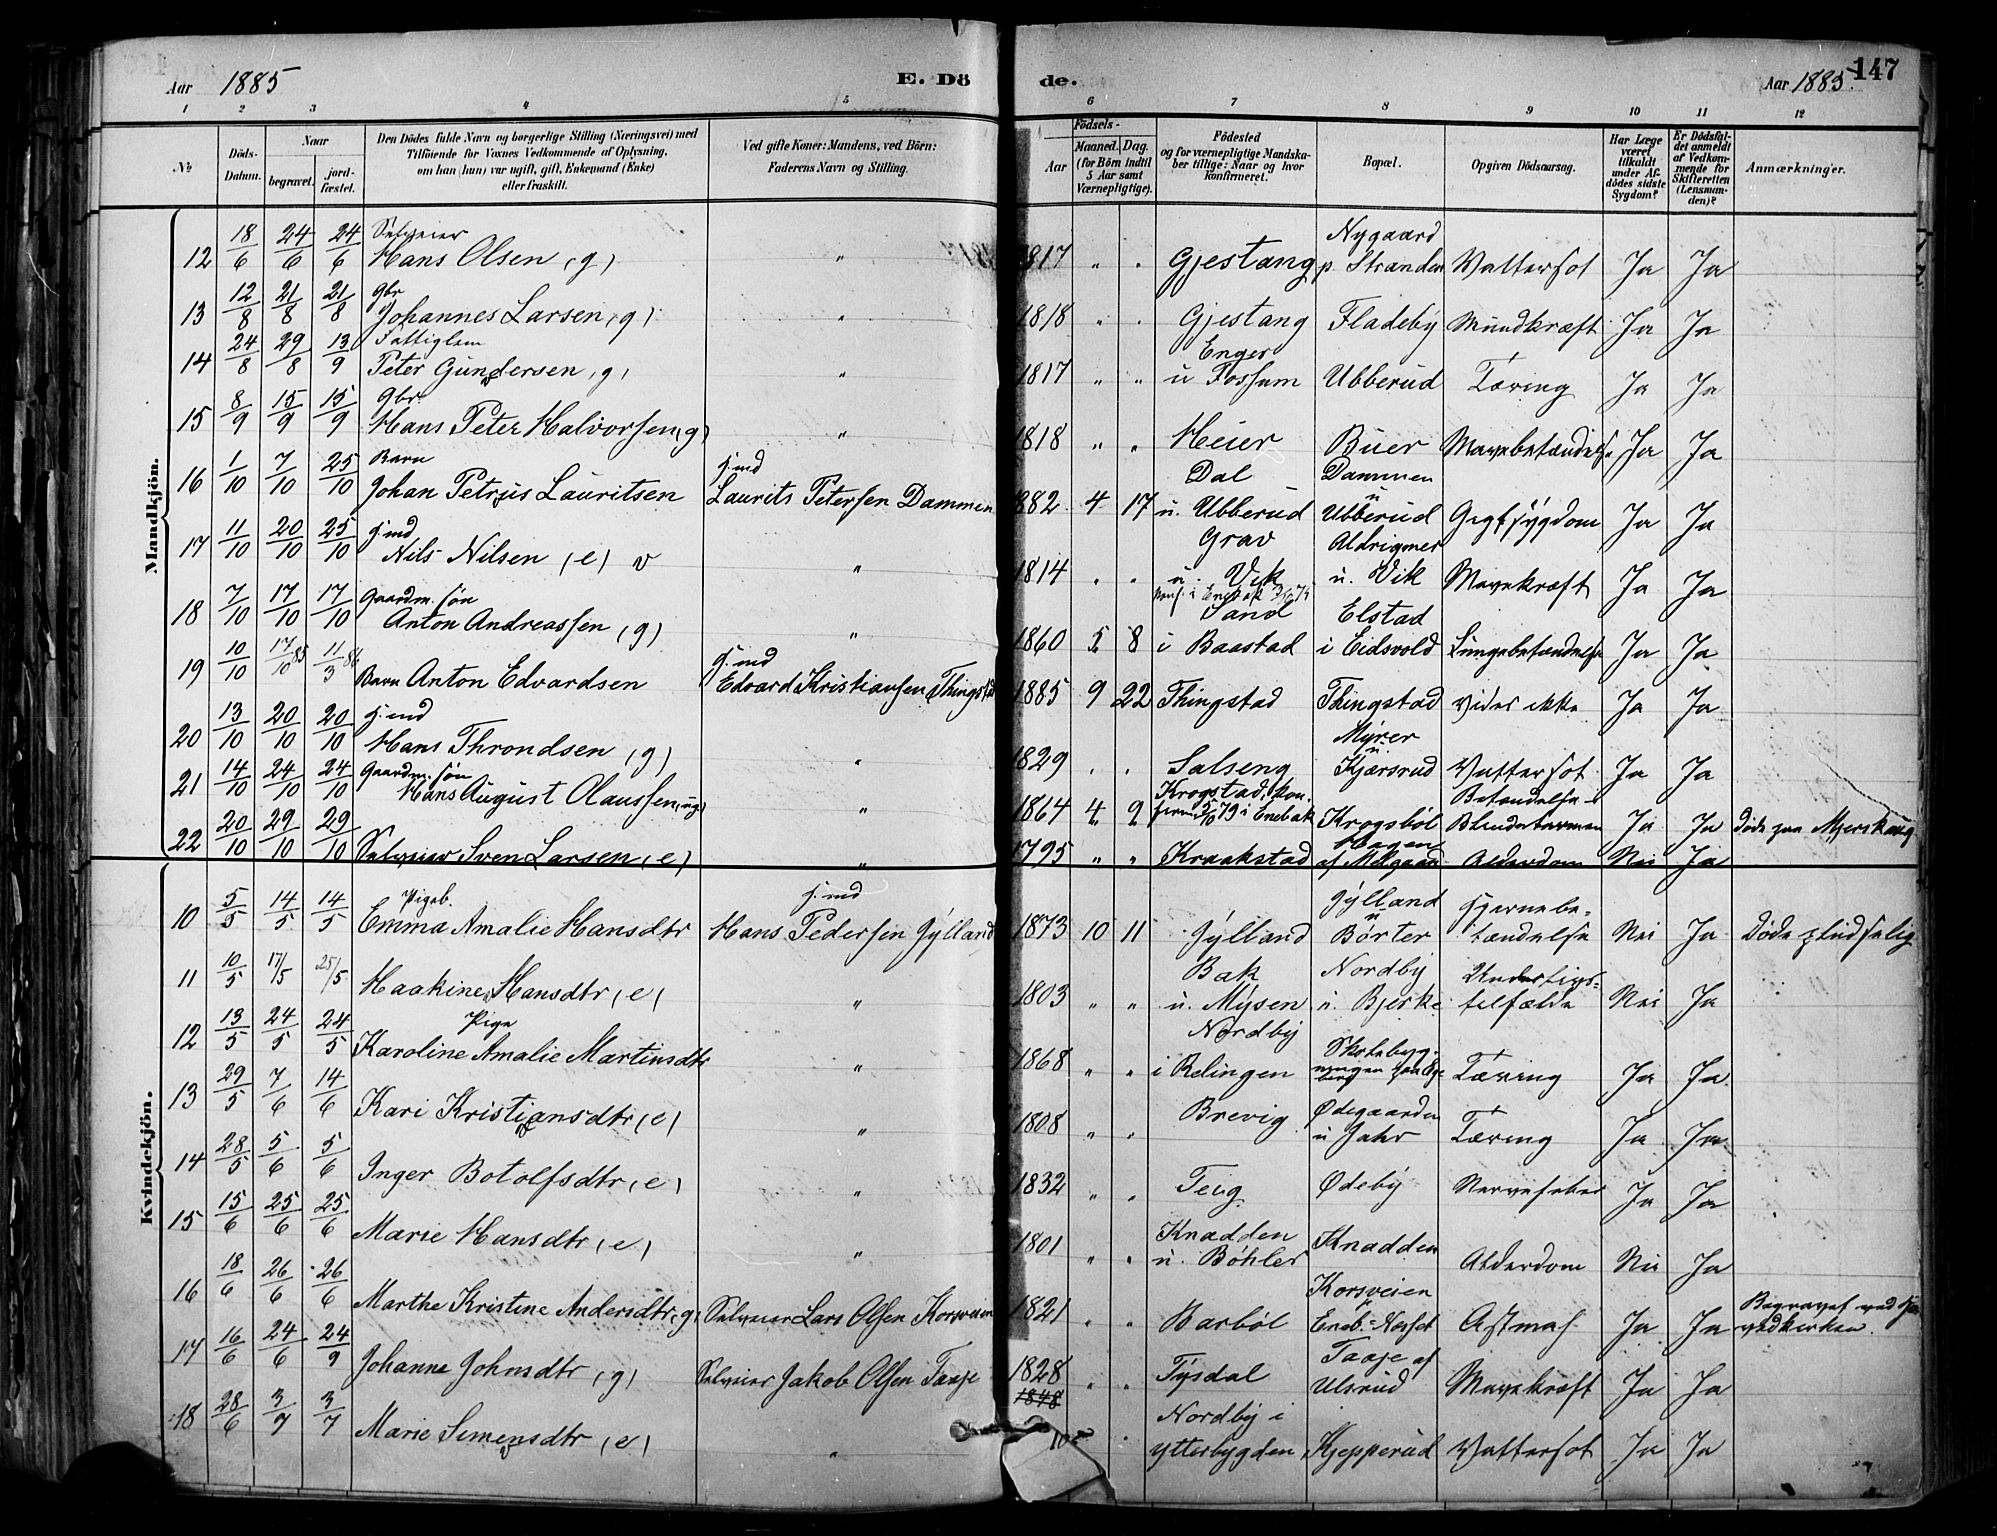 Aar 1885 E. Döde. Aar 1885. 147
1 2 3 4 5 6 7 8 9 10 11 12
№ Döds-Datum. Naar begravet. jordfæstet. Den Dödes fulde Navn og borgerlige Stilling (Næringsvei) med Tilföiende for Voxnes Vedkommende af Oplysning, om han (hun) var ugift, gift, Enkemand (Enke) eller fraskilt. Ved gifte Koner: Mandens, ved Börn: Faderens Navn og Stilling. Födsels- Aar Maaned. Dag. (for Börn indtil 5 Aar samt Værnepligtige). Födested og for værnepligtige Mandskaber tillige: Naar og hvor konfirmeret. Bopæl. Opgiven Dödsaarsag. Har Læge været tilkaldt under Afdödes sidste Sygdom? Er Dödsfaldet anmeldt af Vedkommende for Skifteretten (Lensmanden)? Anmærkninger.
Mandkjön.
12 18/6 24/6 24/6 Selveier Hans Olsen (g) " 1817 " " Gjestang Nygaard p Stranden Vattersot Ja Ja
13 12/8 21/8 21/8 Gbr Johannes Larsen (g) " 1818 " " Gjestang Fladeby Mundkræft Ja Ja
14 24/8 29/8 13/9 Fattiglem Peter Gundersen (g) " 1817 " " Enger u Fossum Ubberud Tæring Ja Ja
15 8/9 15/9 15/9 Gbr. Hans Peter Halvorsen (g) " 1818 " " Heier Buer Mavebetændelse Ja Ja
16 1/10 7/10 25/10 Barn Johan Petrus Lauritsen Hmd Laurits Petersen Dammen 1882 4 17 Dal u. Ubberud Dammen u Ubberud Gigtsygdom Ja Ja
17 11/10 20/10 25/10 Hmd Nils Nilsen (e) " 1814 " " Grav u. Vik Aldrigmer u. Vik Mavekræft Ja Ja
18 7/10 17/10 17/10 Gaardm. søn Anton Andreassen (g) " 1860 5 8 Sand i Baastad Elstad i Eidsvold Lungebetændelse Ja Ja
19 10/10 17/10 85 11/3 86 Barn Anton Edvardsen Hmd Edvard Kristiansen Thingstad 1885 9 22 Thingstad Thingstad vides ikke Ja Ja
20 13/10 20/10 20/10 Hmd Hans Throndsen (g) " 1829 " " Salseng Myrer u. Kjærsrud Vattersot Ja Ja
21 14/10 24/10 24/10 Gaardm. søn Hans August Olaussen (ug) " 1864 4 9 Krogstad, konfirm. 5/10 79 i Enebak Krogsböl Betændelse Blindetarmen Ja Ja Døde paa Mjerskaug
22 20/10 29/10 29/10 Selveier Sven Larsen (e) " 1795 " " Kraakstad Hagen af Melgaard Alderdom Nei Ja
Kvindekjön.
10 5/5 14/5 14/5 Pigeb. Emma Amalie Hansdtr Hmd Hans Pedersen Jylland 1873 10 11 Jylland Jylland u Börter Hjernebetændelse Nei Ja Døde pludselig
11 10/5 17/5 25/5 Haakine Hansdtr (e) " 1803 " " Bak u. Mysen Nordby u. Bjerke Underlivstilfælde Nei Ja
12 13/5 24/5 24/5 Pige Karoline Amalie Martinsdtr " 1868 " " Nordby i Relingen Tæring Ja Ja
13 29/5 7/6 14/6 Kari Kristiansdtr (e) " 1808 " " Brevig Ødegaarden u Jahr Tæring Ja Ja
14 28/5 5/6 5/6 Inger Botolfsdtr (e) " 1832 " " Teig Ødeby Nervefeber Ja Ja
15 15/6 25/6 25/6 Marie Hansdtr (e) " 1801 " " Knadden u. Böhler Knadden Alderdom Nei Ja
16 18/6 26/6 26/6 Marthe Kristine Andersdtr (g) Selveier Lars Olsen Korsveien 1821 " " Barböl Korsveien Eneb.-Næset Astmas Ja Ja Begravet ved
17 16/6 24/6 24/9 Johanne Johnsdtr (g) Selveier Jakob Olsen Taaje 1828 " " Tysdal Taaje af Ulsrud Mavekræft Ja Ja
18 28/6 3/7 3/7 Marie Simensdtr (e) " 1848 " Nordby i ytterbygden Kjepperud Vattersot Ja Ja